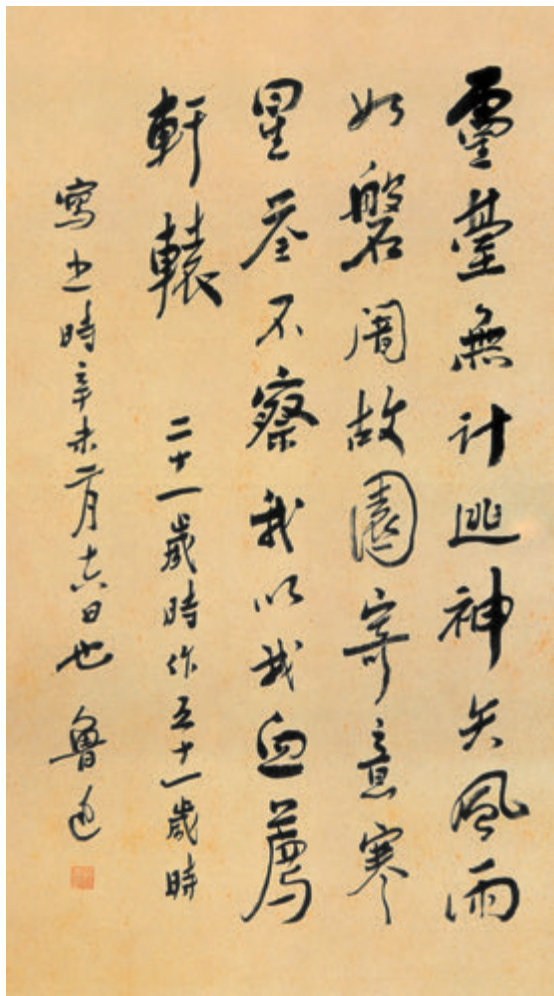 靈臺無計逃神矢風雨
如磐闇故園寄意寒
星荃不察我以我血薦
軒轅
二十一歲時作五十一歲時
寫之時辛未二月十六日也
魯迅